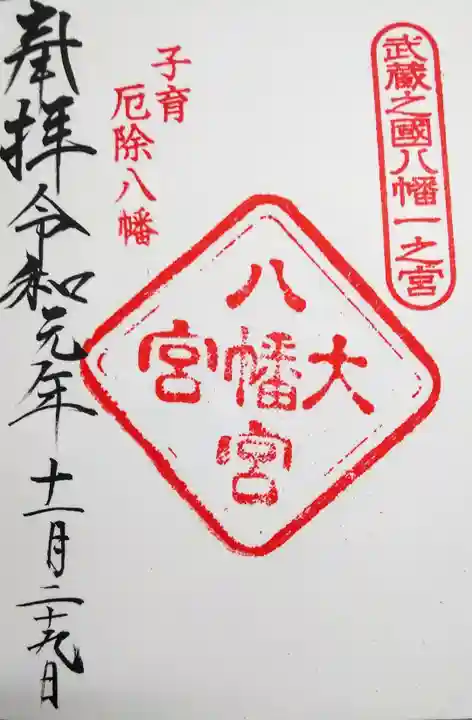 武蔵之國八幡一之宮
子育
厄除八幡
八
大幡宮
宮
奉拝令和元年十一月二十九日